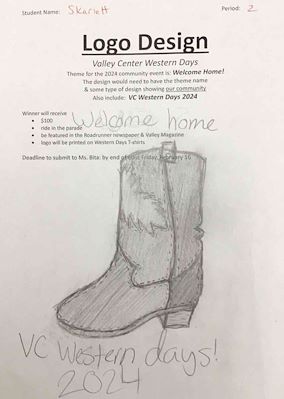 Student Name: Skarlett Period: 2
Logo Design
Valley Center Western Days
Theme for the 2024 community event is: Welcome Home!
The design would need to have the theme name
& some type of design showing our community
Also include: VC Western Days 2024
Winner will receive
• $100
• ride in the parade
• be featured in the Roadrunner newspaper & Valley Magazine
• logo will be printed on Western Days T-shirts
Welcome home
Deadline to submit to Ms. Bita: by end of day Friday, February 16
VC Western days!
2024